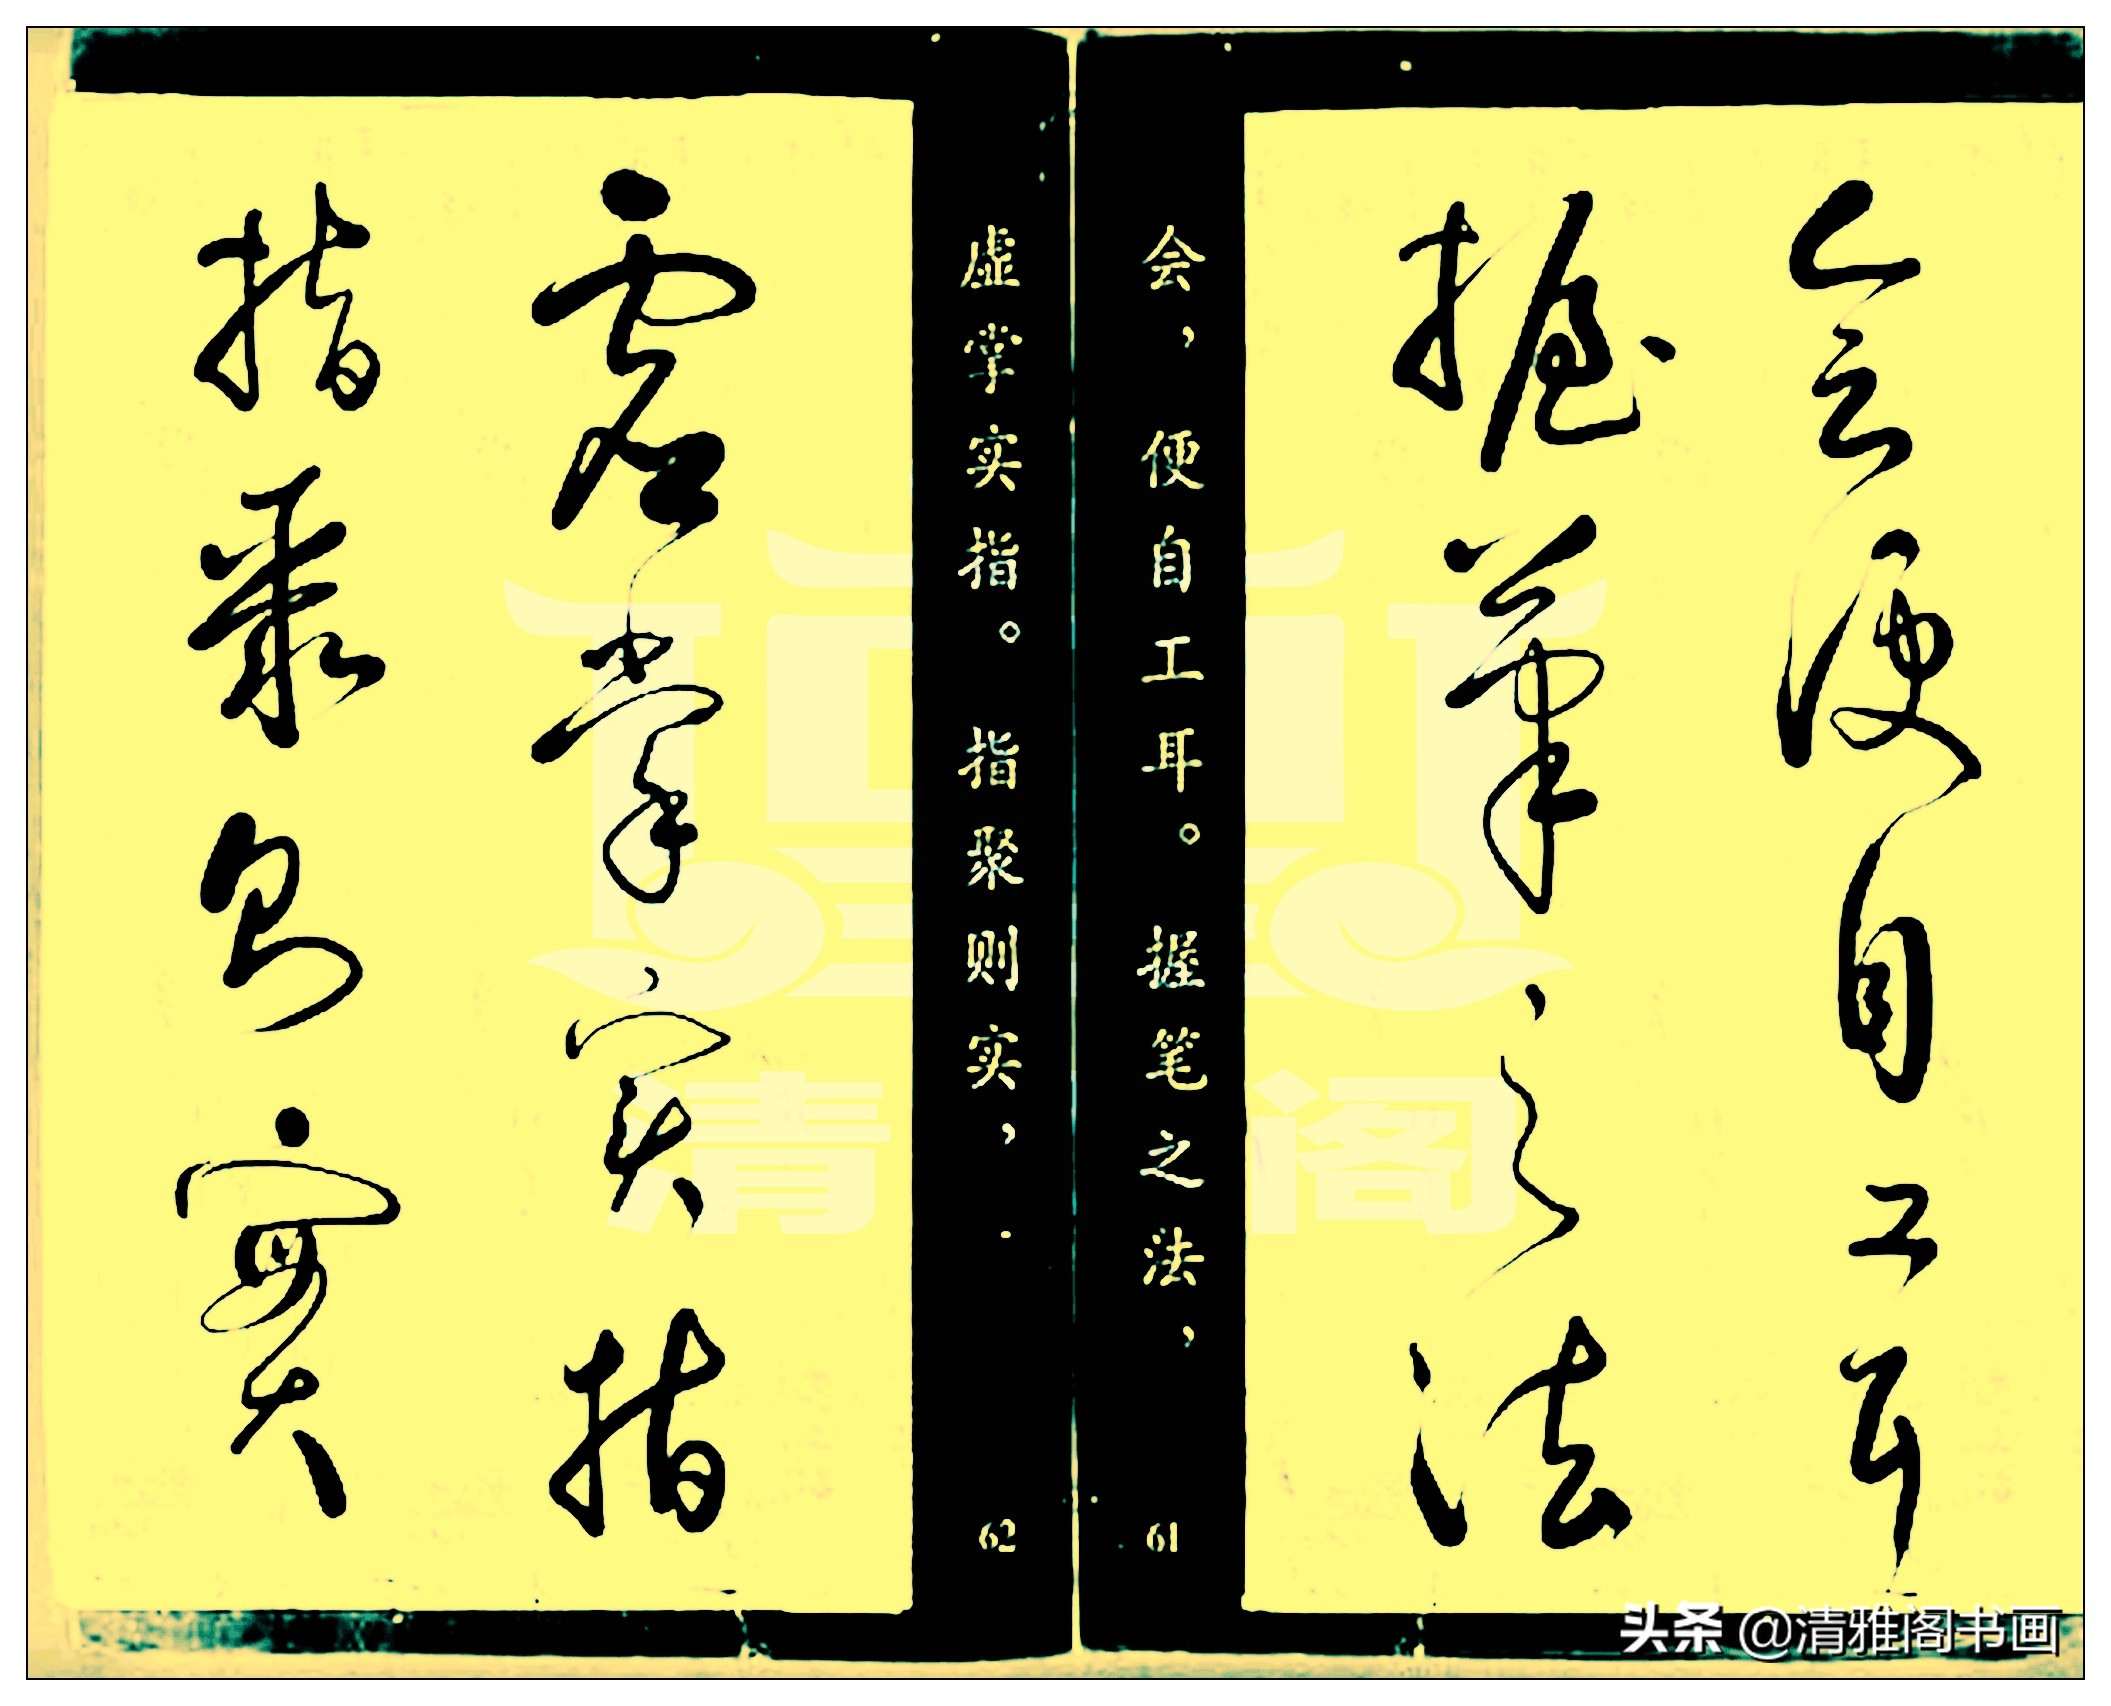 会便自工耳
握笔之法
会，便自工耳。握笔之法，
61
虚掌实指
指聚则实
虚掌实指。指聚则实，
62
清 阁
头条 @清雅阁书画